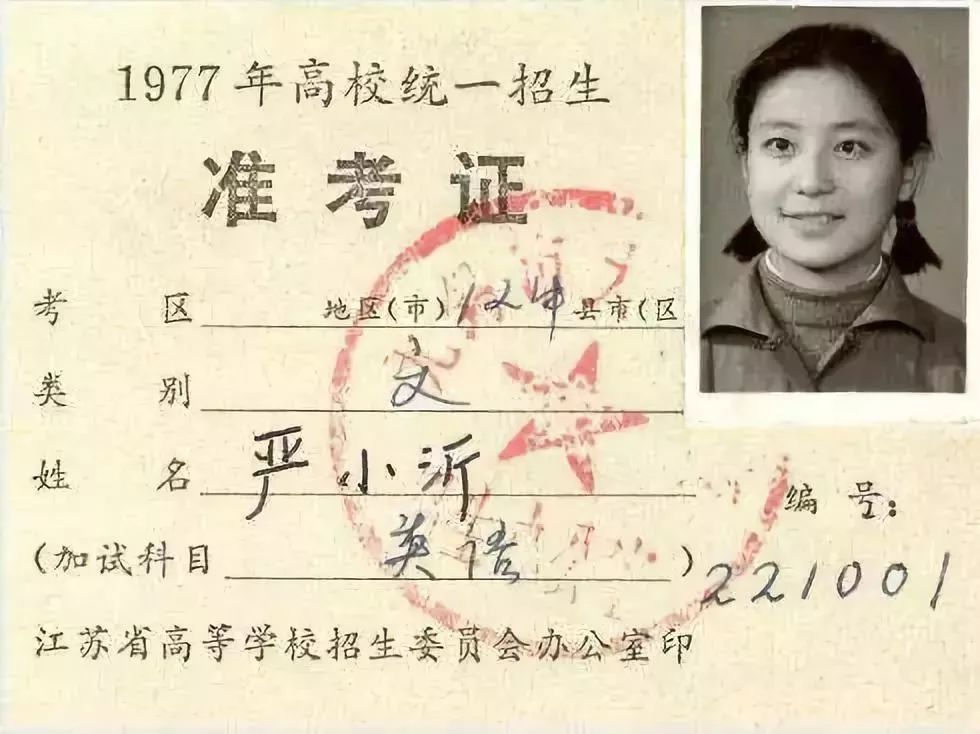 1977年高校统一招生
准考证
考 区 地区(市) 县市(区
类 别 文
姓 名 严小沂
编 号:
(加试科目 英语 )
221001
江苏省高等学校招生委员会办公室印